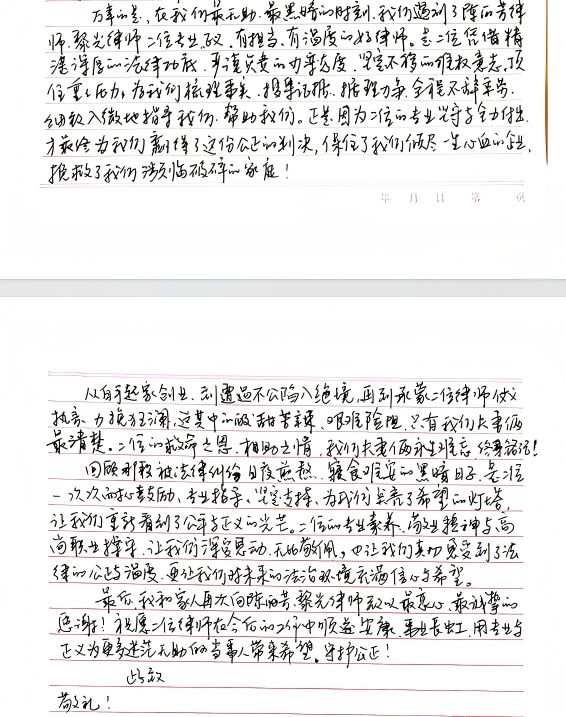 万幸的是，在我们最无助、最黑暗的时刻，我们遇到了陈丽芳律
师、黎光律师二位专业、有担当、有温度的好律师。是二位凭借精
湛深厚的法律功底、严谨负责的办案态度、坚定不移的维权意志，顶
住重重压力，为我们梳理事实、搜集证据、据理力争，全程不辞辛劳、
细致入微地指导我们、帮助我们。正是因为二位的专业坚守与全力付出，
才最终为我们赢得了这份公正的判决，保住了我们倾尽一生心血的企业，
挽救了我们濒临破碎的家庭！
年 月 日 第 页
从白手起家创业，到遭遇不公陷入绝境，再到承蒙二位律师仗义
执言、力挽狂澜，这其中的酸甜苦辣、艰难险阻，只有我们夫妻俩
最清楚。二位的救命之恩、相助之情，我们夫妻俩永生难忘，终身铭记！
回顾那段被法律纠纷日夜煎熬、寝食难安的黑暗日子，是二位
一次次的鼓励、专业指导、坚定支持，为我们点亮了希望的灯塔，
让我们重新看到了公平与正义的光芒。二位的专业素养、敬业精神与高
尚职业操守，让我们深感动、无比敬佩，也让我们真切感受到了法
律的公正与温度，更让我们对未来的法治环境充满信心与希望。
最后，我和家人再次向陈丽芳、黎光律师致以最衷心、最诚挚的
感谢！祝愿二位律师在今后的工作中顺遂安康、事业长虹，用专业与
正义为更多迷茫无助的当事人带来希望、守护公正！
此致
敬礼！